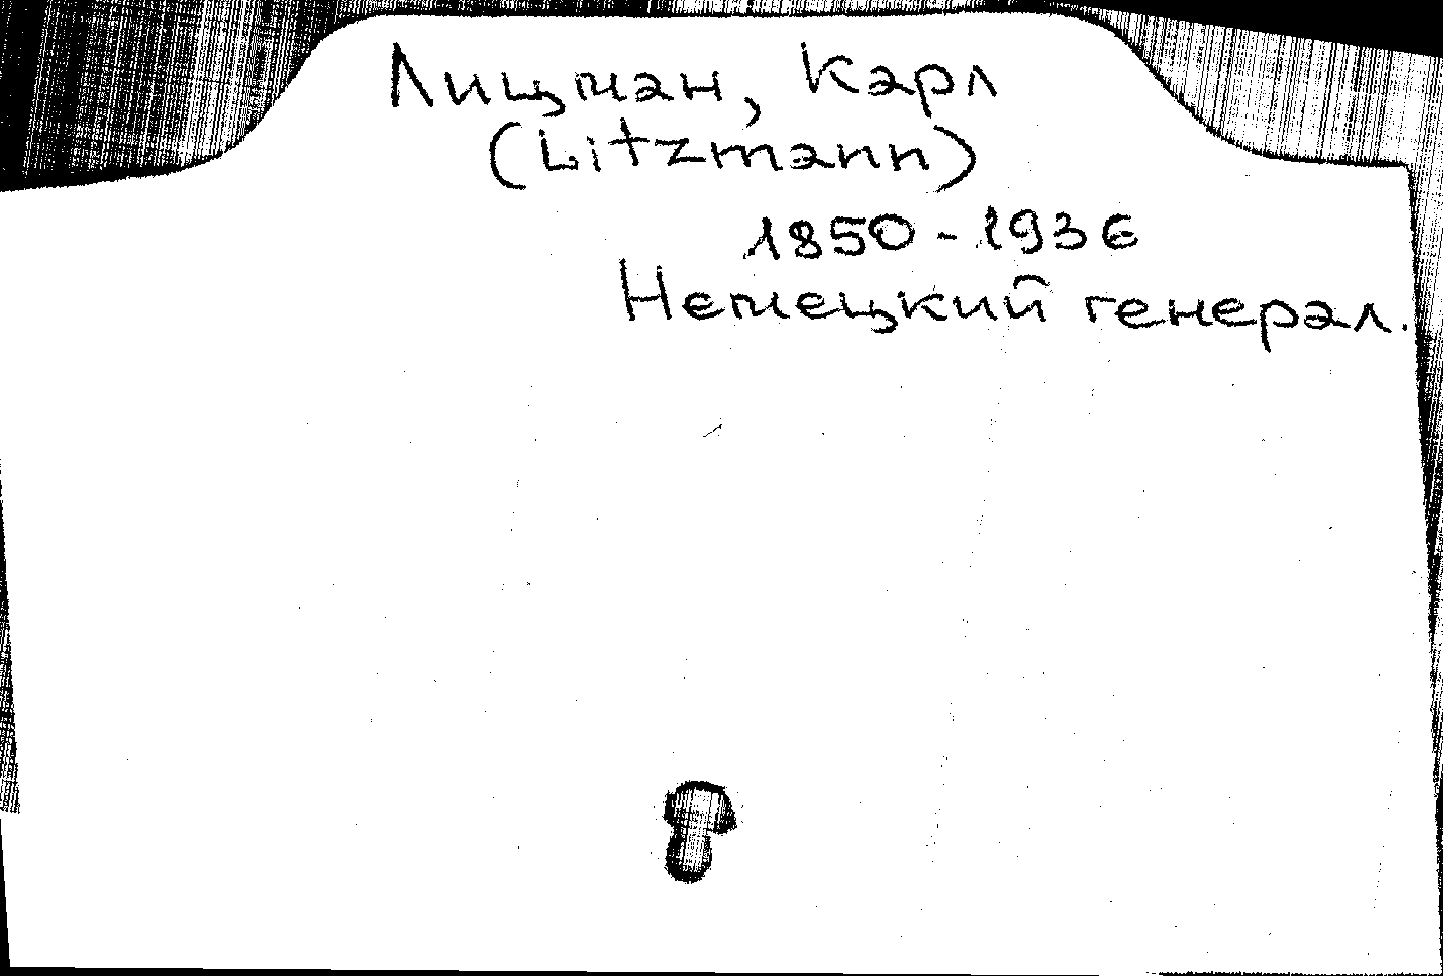 Лицман, Карл
(Litzmann)
1850-1936
Немецкий генерал.